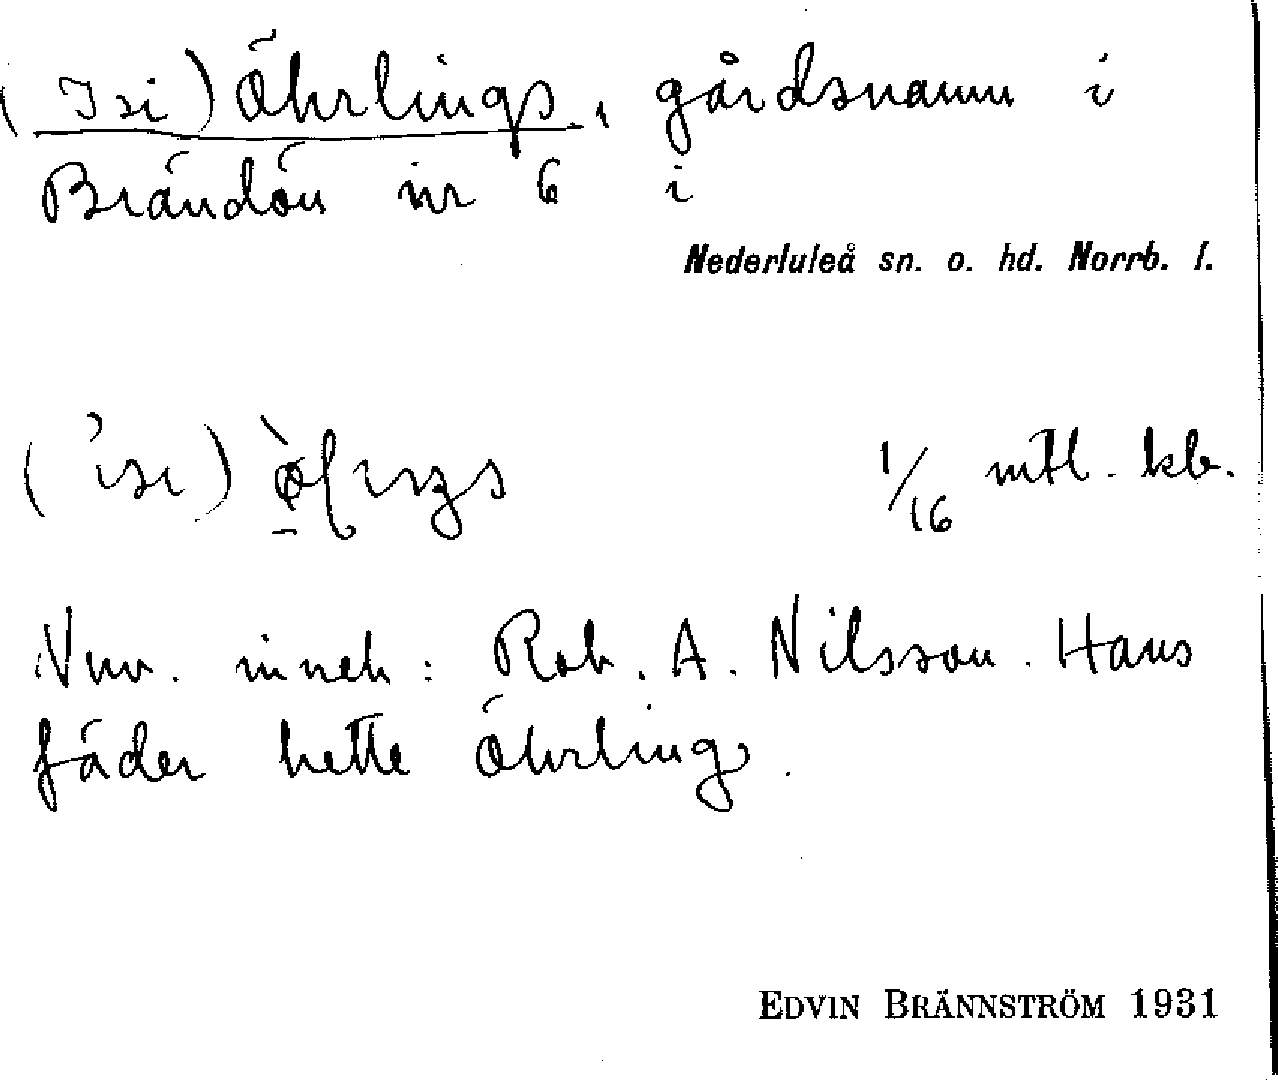 (Isi) Öhrlings, gårdsnamn i
Brändön nr 6 i
Nederluleå sn. o. hd. Norrb. l.
1/16 mtl. kb.
Nuv. inneh: Rob. A. Nilsson. Hans
fäder hette Öhrling.
EDVIN BRÄNNSTRÖM 1931